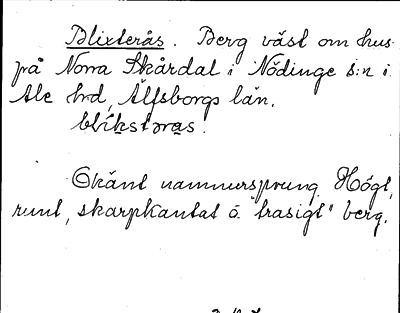 Blixterås. Berg väst om hus
på Norra Skårdal i Nödinge s:n i
Ale hrd, Älfsborgs län.
blikstəras.
Okänt namnursprung. Högt,
runt, skarpkantat o. "trasigt" berg.